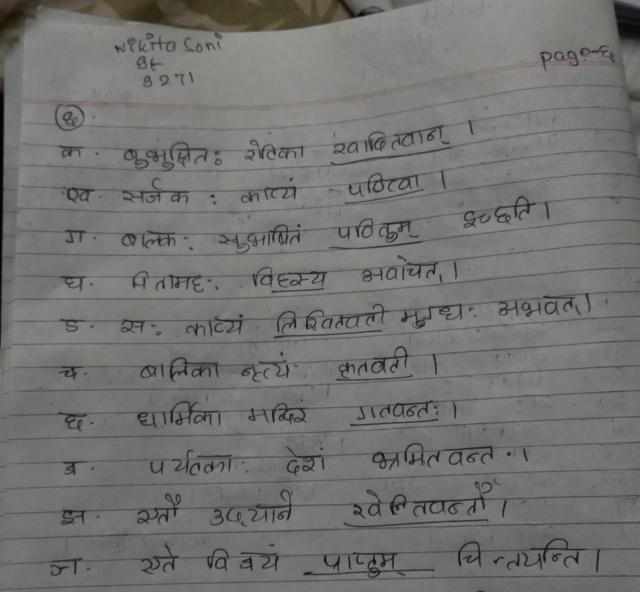 Nikita Soni
8t
8271
page-६
६.
क. बुभुक्षित: रोटिका खादितवान् ।
ख. सर्जक: काव्यं पठित्वा ।
ग. बालक: सुभाषितं पठितुम् इच्छति ।
घ. पितामह: विहस्य अवोचत् ।
ङ. स: काव्यं लिखितवती मुग्ध: अभवत् ।
च. बालिका नृत्यं कृतवती ।
छ. धार्मिका मन्दिरं गतवन्त: ।
ज. पर्यटका: देशं भ्रमितवन्त: ।
झ. एतौ उद्याने खेलितवन्तौ ।
ञ. एते विजयं प्राप्तुम् चिन्तयन्ति ।